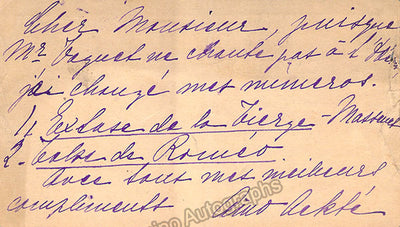 Cher Monsieur, puisque
Mr. Vaguet ne chante pas à l'
j'ai changé mes numeros.
1, Extase de la Vierge - Massenet
2. Valse de Roméo
Avec tous mes meilleurs
compliments Aino Ackté
Autographs